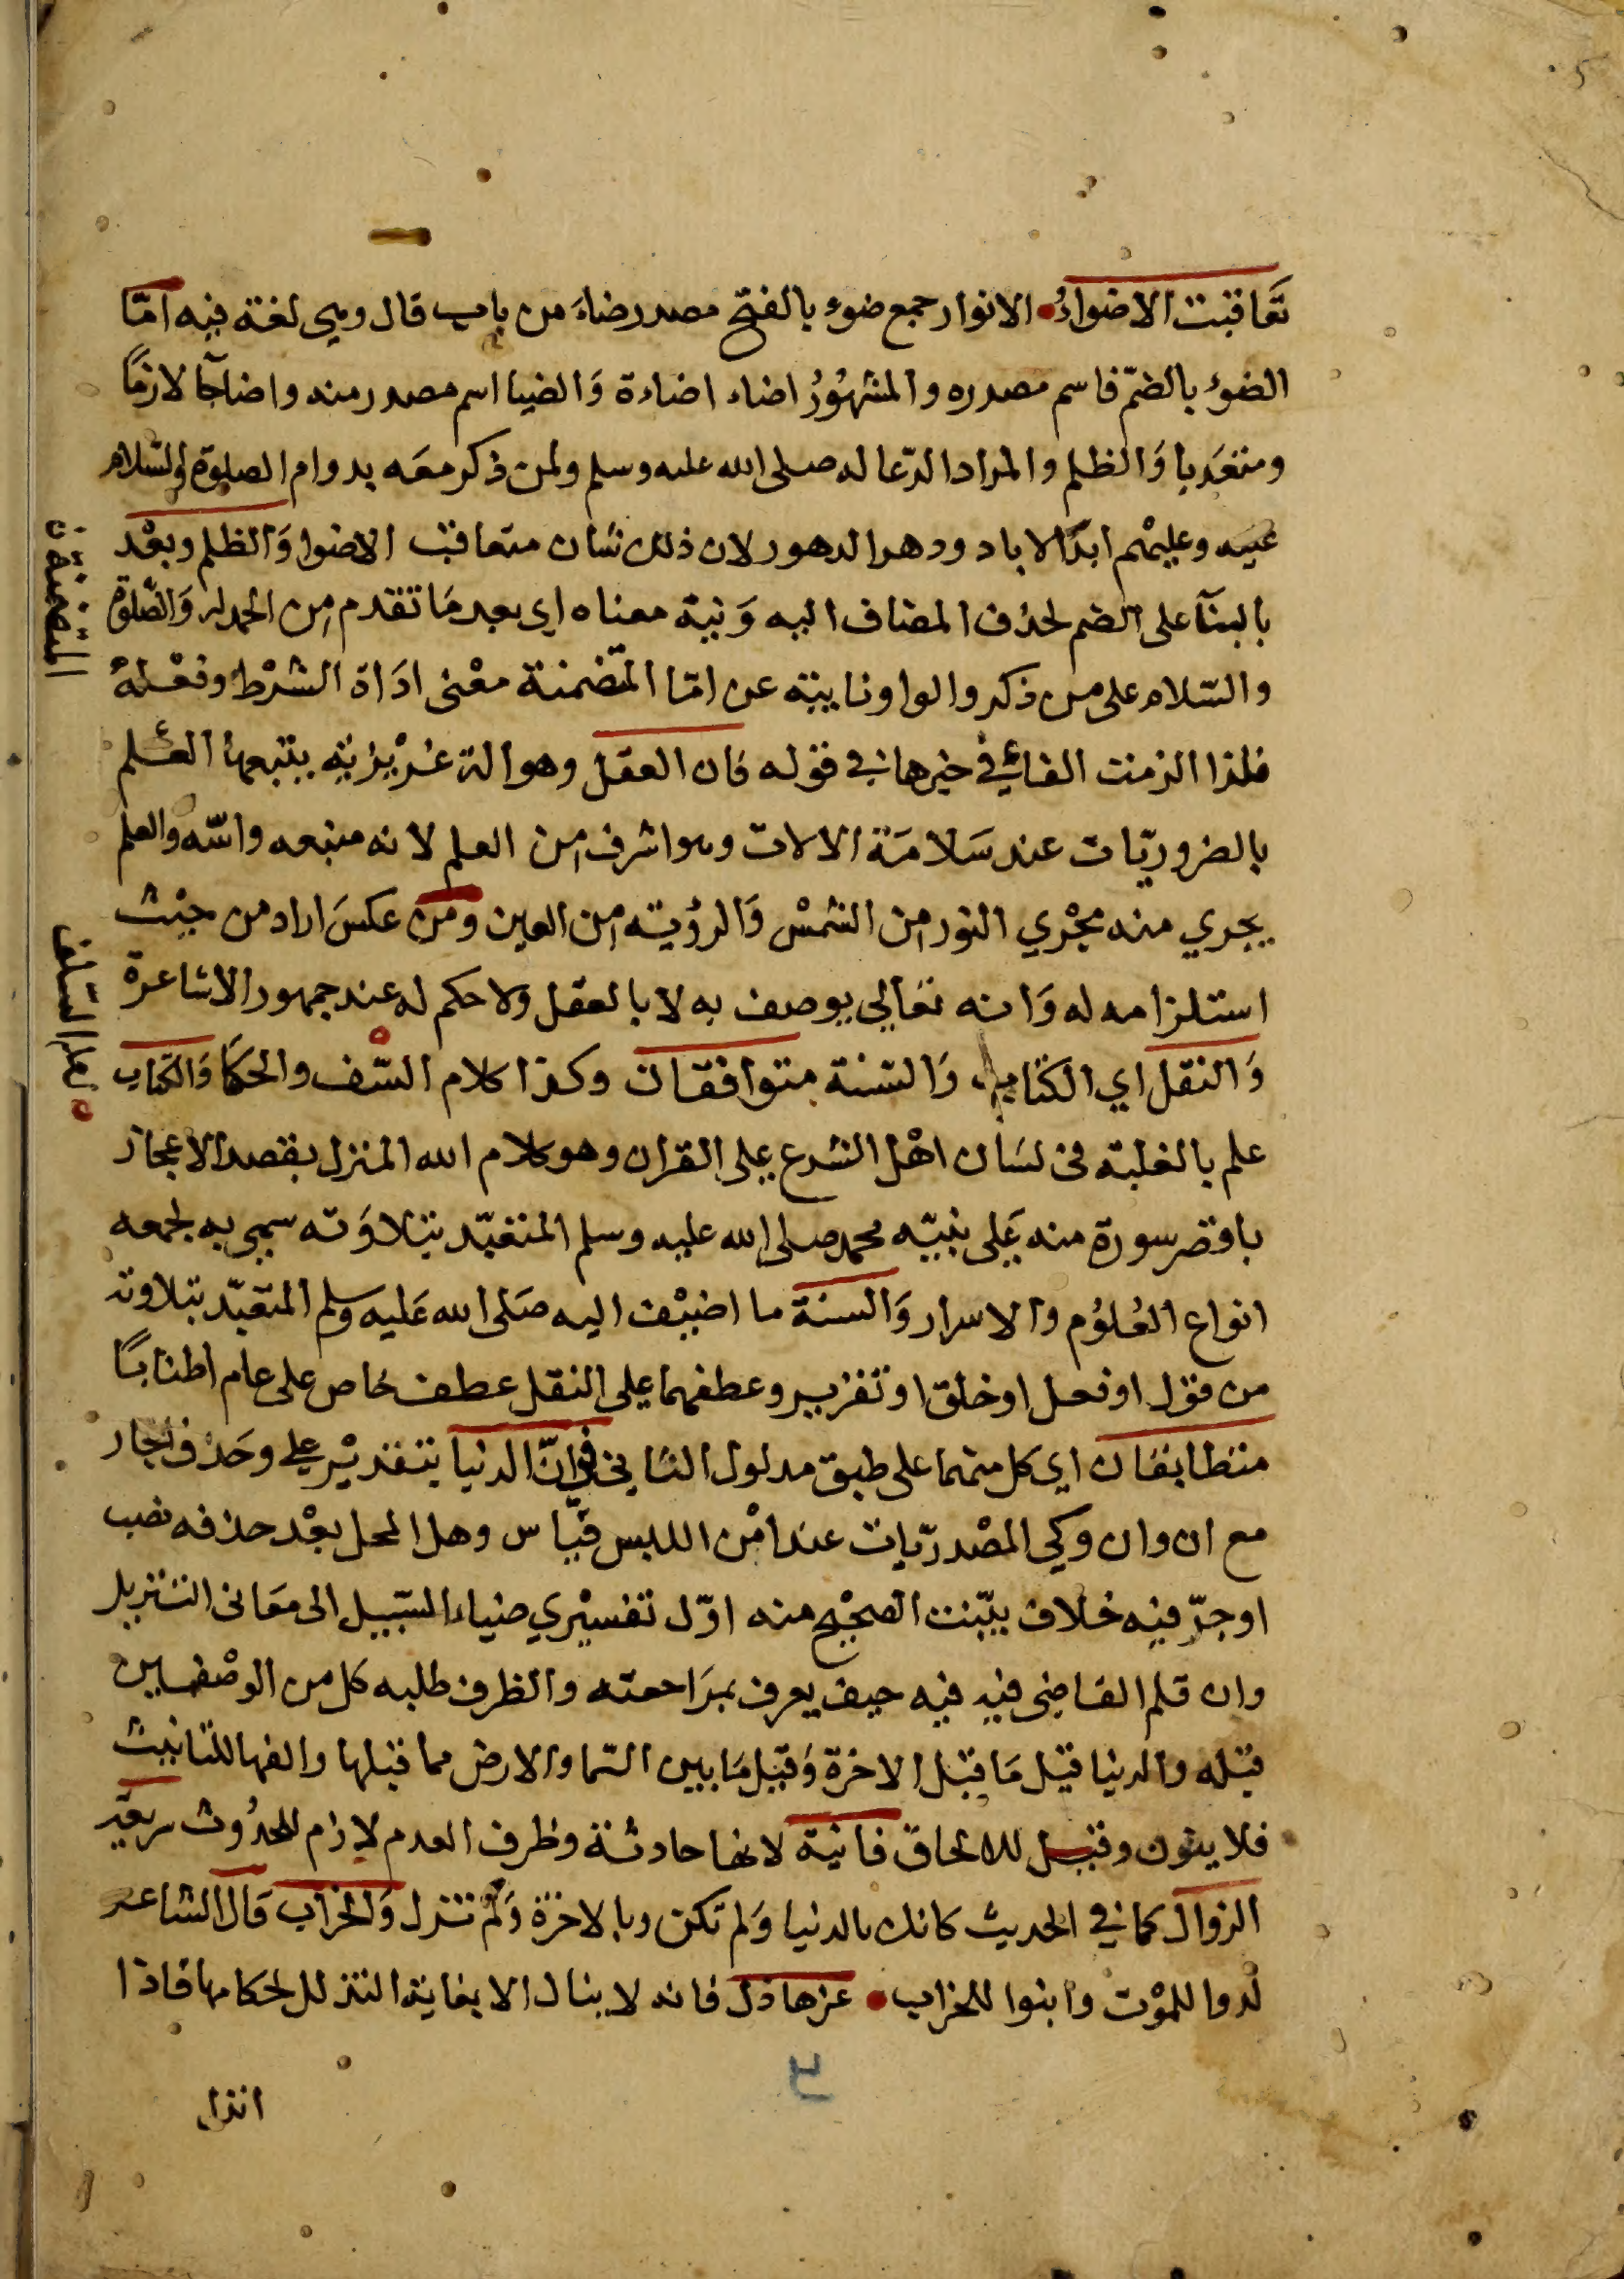 تَعاقبت الاضواءُ الانوار جمع ضوء بالفتح مصدر ضاءَ من باب قال وهي لغة فيه امّا
الضوء بالضمّ فاسم مصدره والمشهُورُ اضاء اضاءة وَالضيا اسم مصدر منه واضا جآ لازمًا
ومتعَديا وَالظلم والمراد الدّعا له صلى الله عليه وسلم ولمن ذكر معَه بدوام الصلوة والسّلام
عليه وعليهْم ابدَ الاباد ودهر الدهور لان ذلك شان متعاقب الاضوا وَالظلم وبعْد
بالبنَآ على الضم لحذف المضاف اليه وَنية معناه اي بعد مَا تقدم من الحمد له وَالصّلوة
والسّلام على من ذكر والواو نايبة عن امّا المتضمنة معْنى ادَاة الشرْط وفعْلهُ
فلهذا الزمت الفاء في خبرها في قوله فان العقل وهو الة غرْيزية يتبعها العلم
بالضروريّات عند سَلامَة الالات وهو اشرف من العلم لانه منبعه واسّه والعلم
يجري منه مجْري النور من الشمسْ وَالرؤية من العين ومَن عكسَ اراد من حيْث
استلزامه له وَانه تعَالى يوصف به لا بالعقل ولا حكم له عند جمهور الاشاعرة
وَالنقل اي الكتاب وَالسّنة متوافقان وكذا كلام السّف والحكمَا وَالكتاب
علم بالغلبة في لسَان اهْل الشرع على القران وهو كلام الله المنزل بقصد الاعجاز
باقصر سورة منه عَلى نبيّه محمد صلى الله عليه وسلم المتعبّد بتلاوَته سمي به لجمعه
انواع العُلوُم والاسرار وَالسنة ما اضيْف اليه صَلى الله عَليه وسلم المتعبّد بتلاوته
من قوْل او فعل او خلق او تقرير وعطفهما على النقل عطف خاص على عام اطنابًا
متطابقان اي كل منهما على طبق مدلول الثاني في انّ الدنيا بتقديْر على وحَذف الجار
مع ان وان وكي المصْدريّات عند امْن اللبس قيّاس وهل المحل بعْد حذفه نصب
او جرّ فيه خلاف بيّنت الصحيْح منه اوّل تفسيْري ضياء السّبيل الى معَاني التنزيل
وان قلم القاضي فيه فيه حيف يعرف بمرَاجعته والظرف طلبه كل من الوصْفين
قبْله والدنيا قيْل مَا قبْل الاخرة وَقيْل مَا بين السّما والارض مما قبْلها والفها للتانيث
فلا ينون وقيل للالحاق فانية لانها حادثة وظرف العدم لازم للحدُوث سريعَة
الزوال كما في الحديث كانك بالدنيا وَلم تكن وبالاخرَة وَلم تزل وَالخرَاب قال الشاعر
لدوا للموْت وابنوا للخراب عزها ذل فانه لا ينال الا بغاية التذلل لحكامها فاذا
انزل
المتضمنة
كلام السّلف